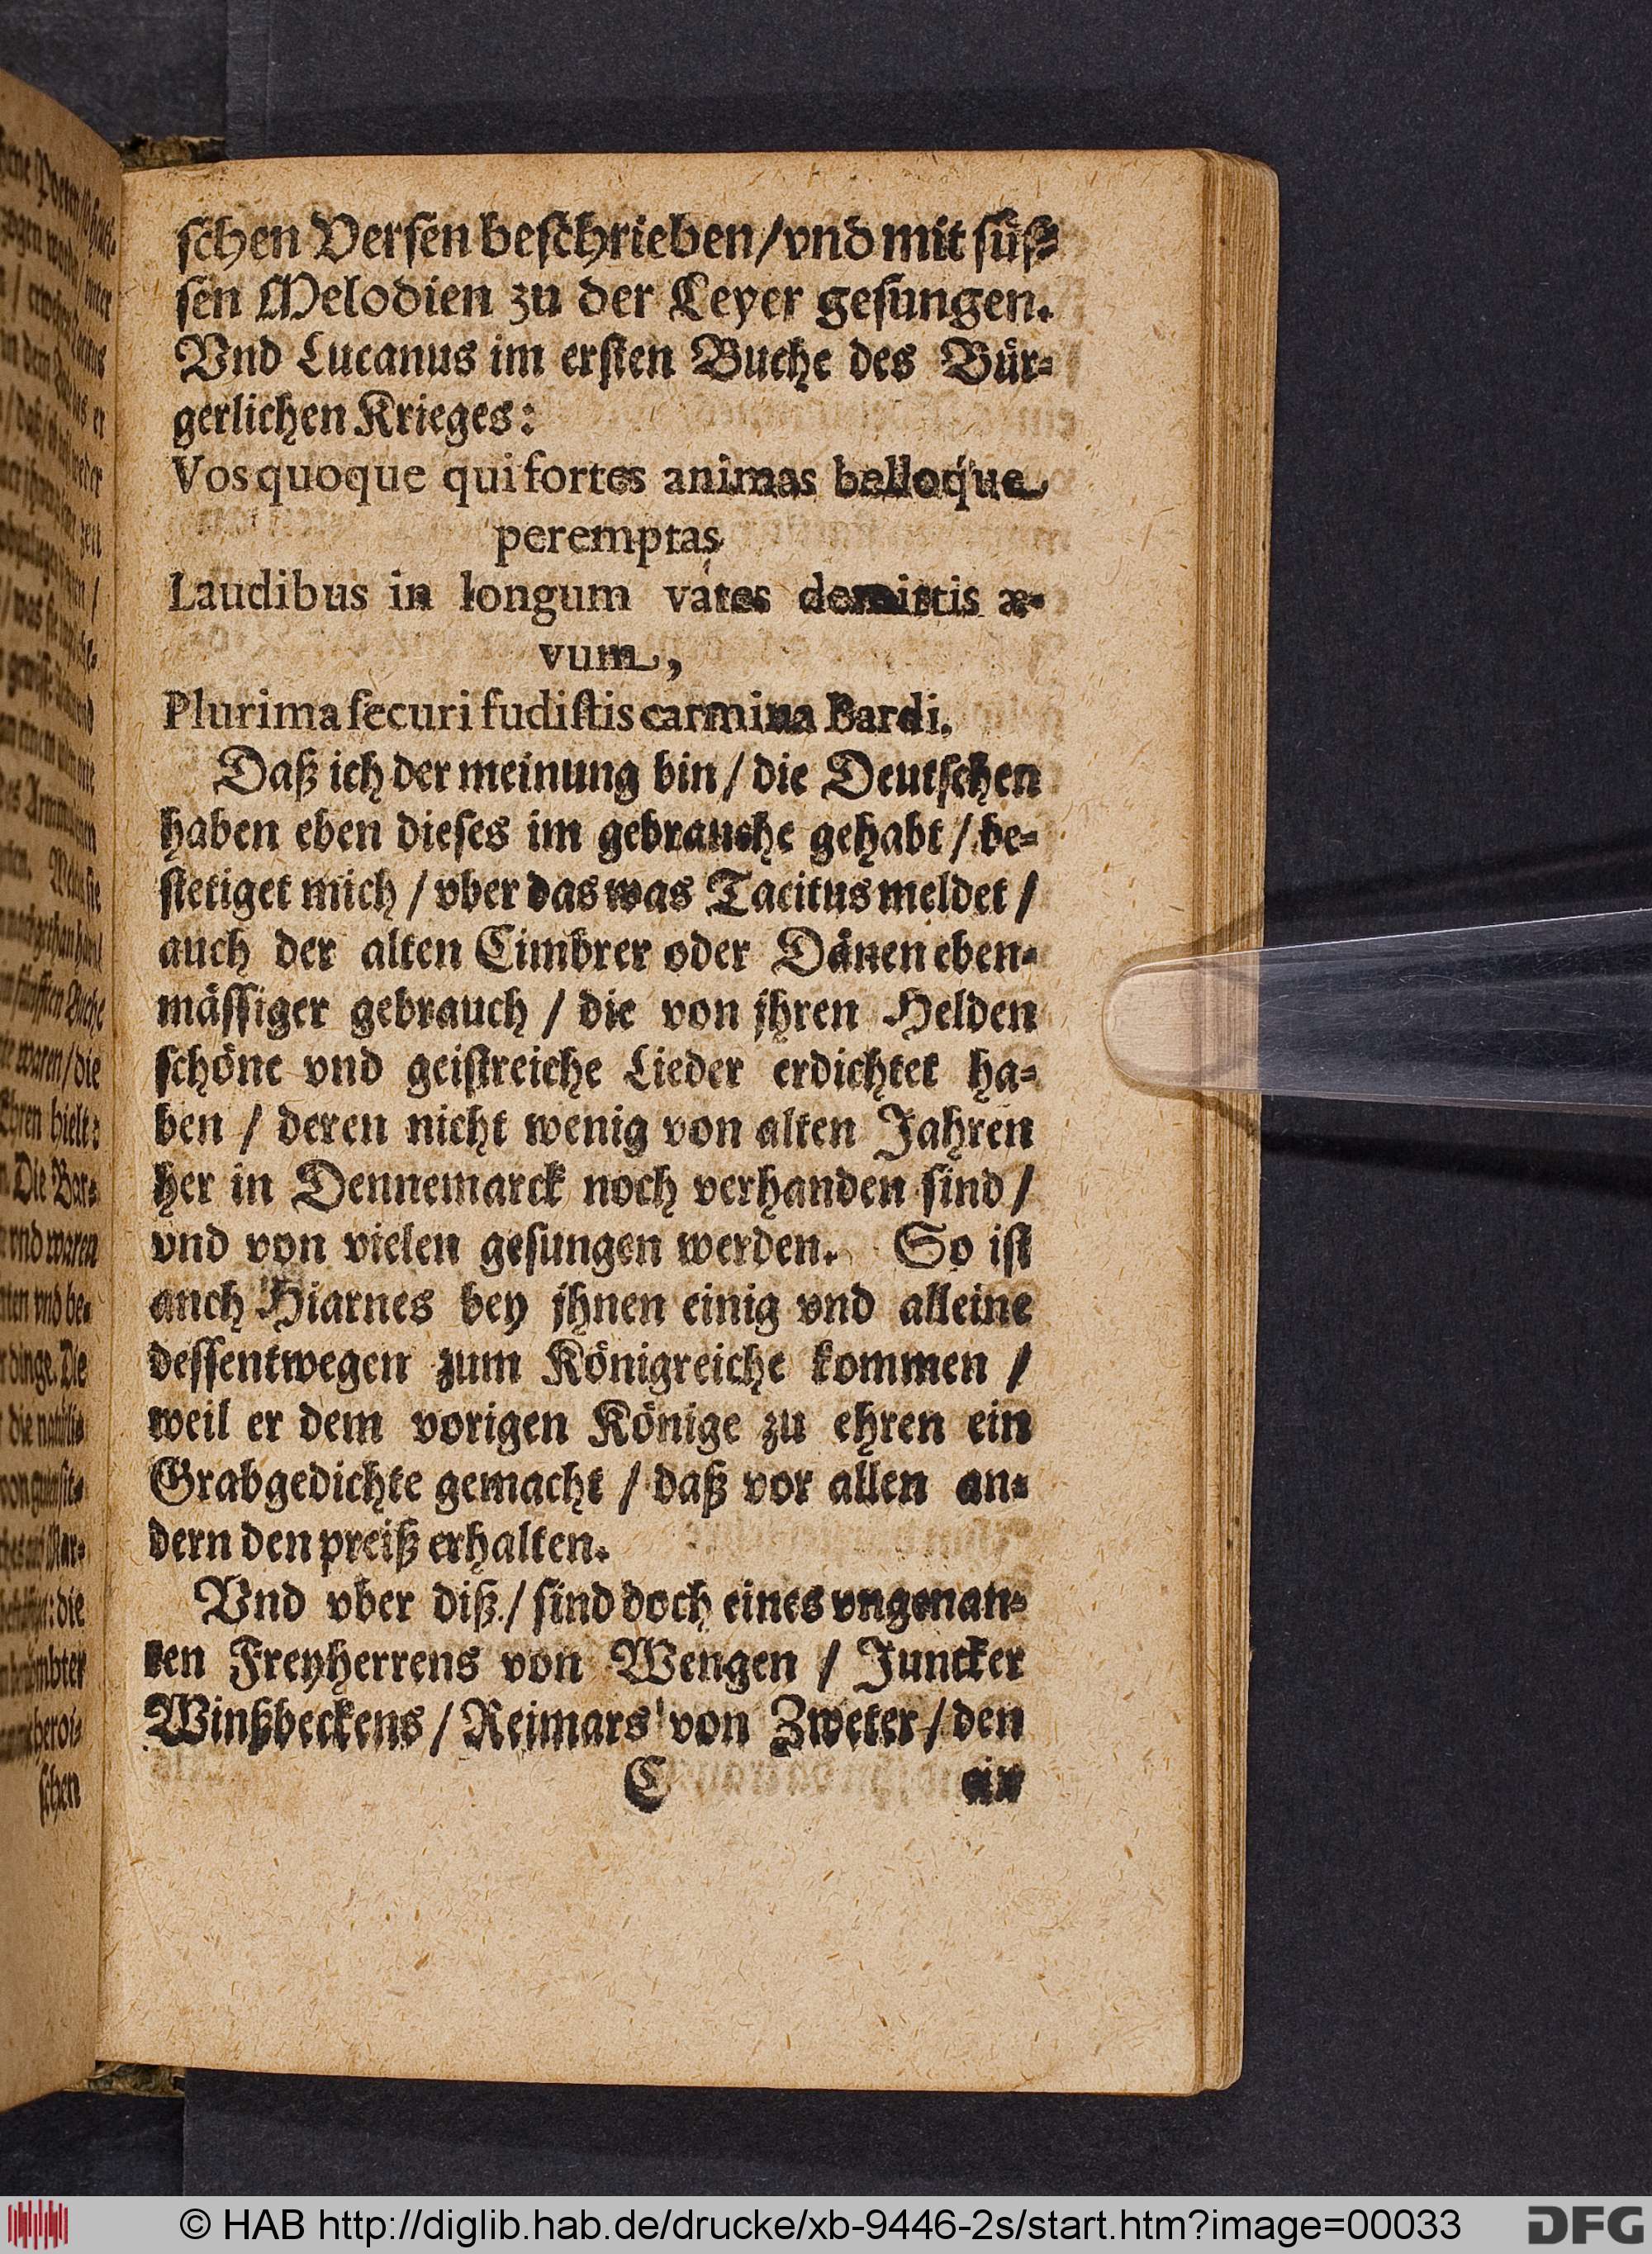 schen Versen beschrieben/vnd mit süs-
sen Melodien zu der Leyer gesungen.
Vnd Lucanus im ersten Buche des Bür-
gerlichen Krieges:
Vos quoque qui fortes animas belloque
peremptas
Laudibus in longum vates demittis æ-
vum,
Plurima securi fudistis carmina Bardi.
Daß ich der meinung bin/ die Deutschen
haben eben dieses im gebrauche gehabt/ be-
stetiget mich/ vber das was Tacitus meldet/
auch der alten Cimbrer oder Dänen eben-
mässiger gebrauch/ die von jhren Helden
schöne vnd geistreiche Lieder erdichtet ha-
ben/ deren nicht wenig von alten Jahren
her in Dennemarck noch verhanden sind/
vnd von vielen gesungen werden. So ist
auch Hiarnes bey jhnen einig vnd alleine
dessentwegen zum Königreiche kommen/
weil er dem vorigen Könige zu ehren ein
Grabgedichte gemacht/ daß vor allen an-
dern den preiß erhalten.
Vnd vber diß/ sind doch eines vngenan-
ten Freyherrens von Wengen/ Juncker
Winßbeckens/ Reimars von Zweter/ den
C ein
waren/die
Ehren hielt:
Die Bar-
vnd waren
vnd be-
dinge. Die
die natürli-
die
heroi-
schen
© HAB http://diglib.hab.de/drucke/xb-9446-2s/start.htm?image=00033
DFG